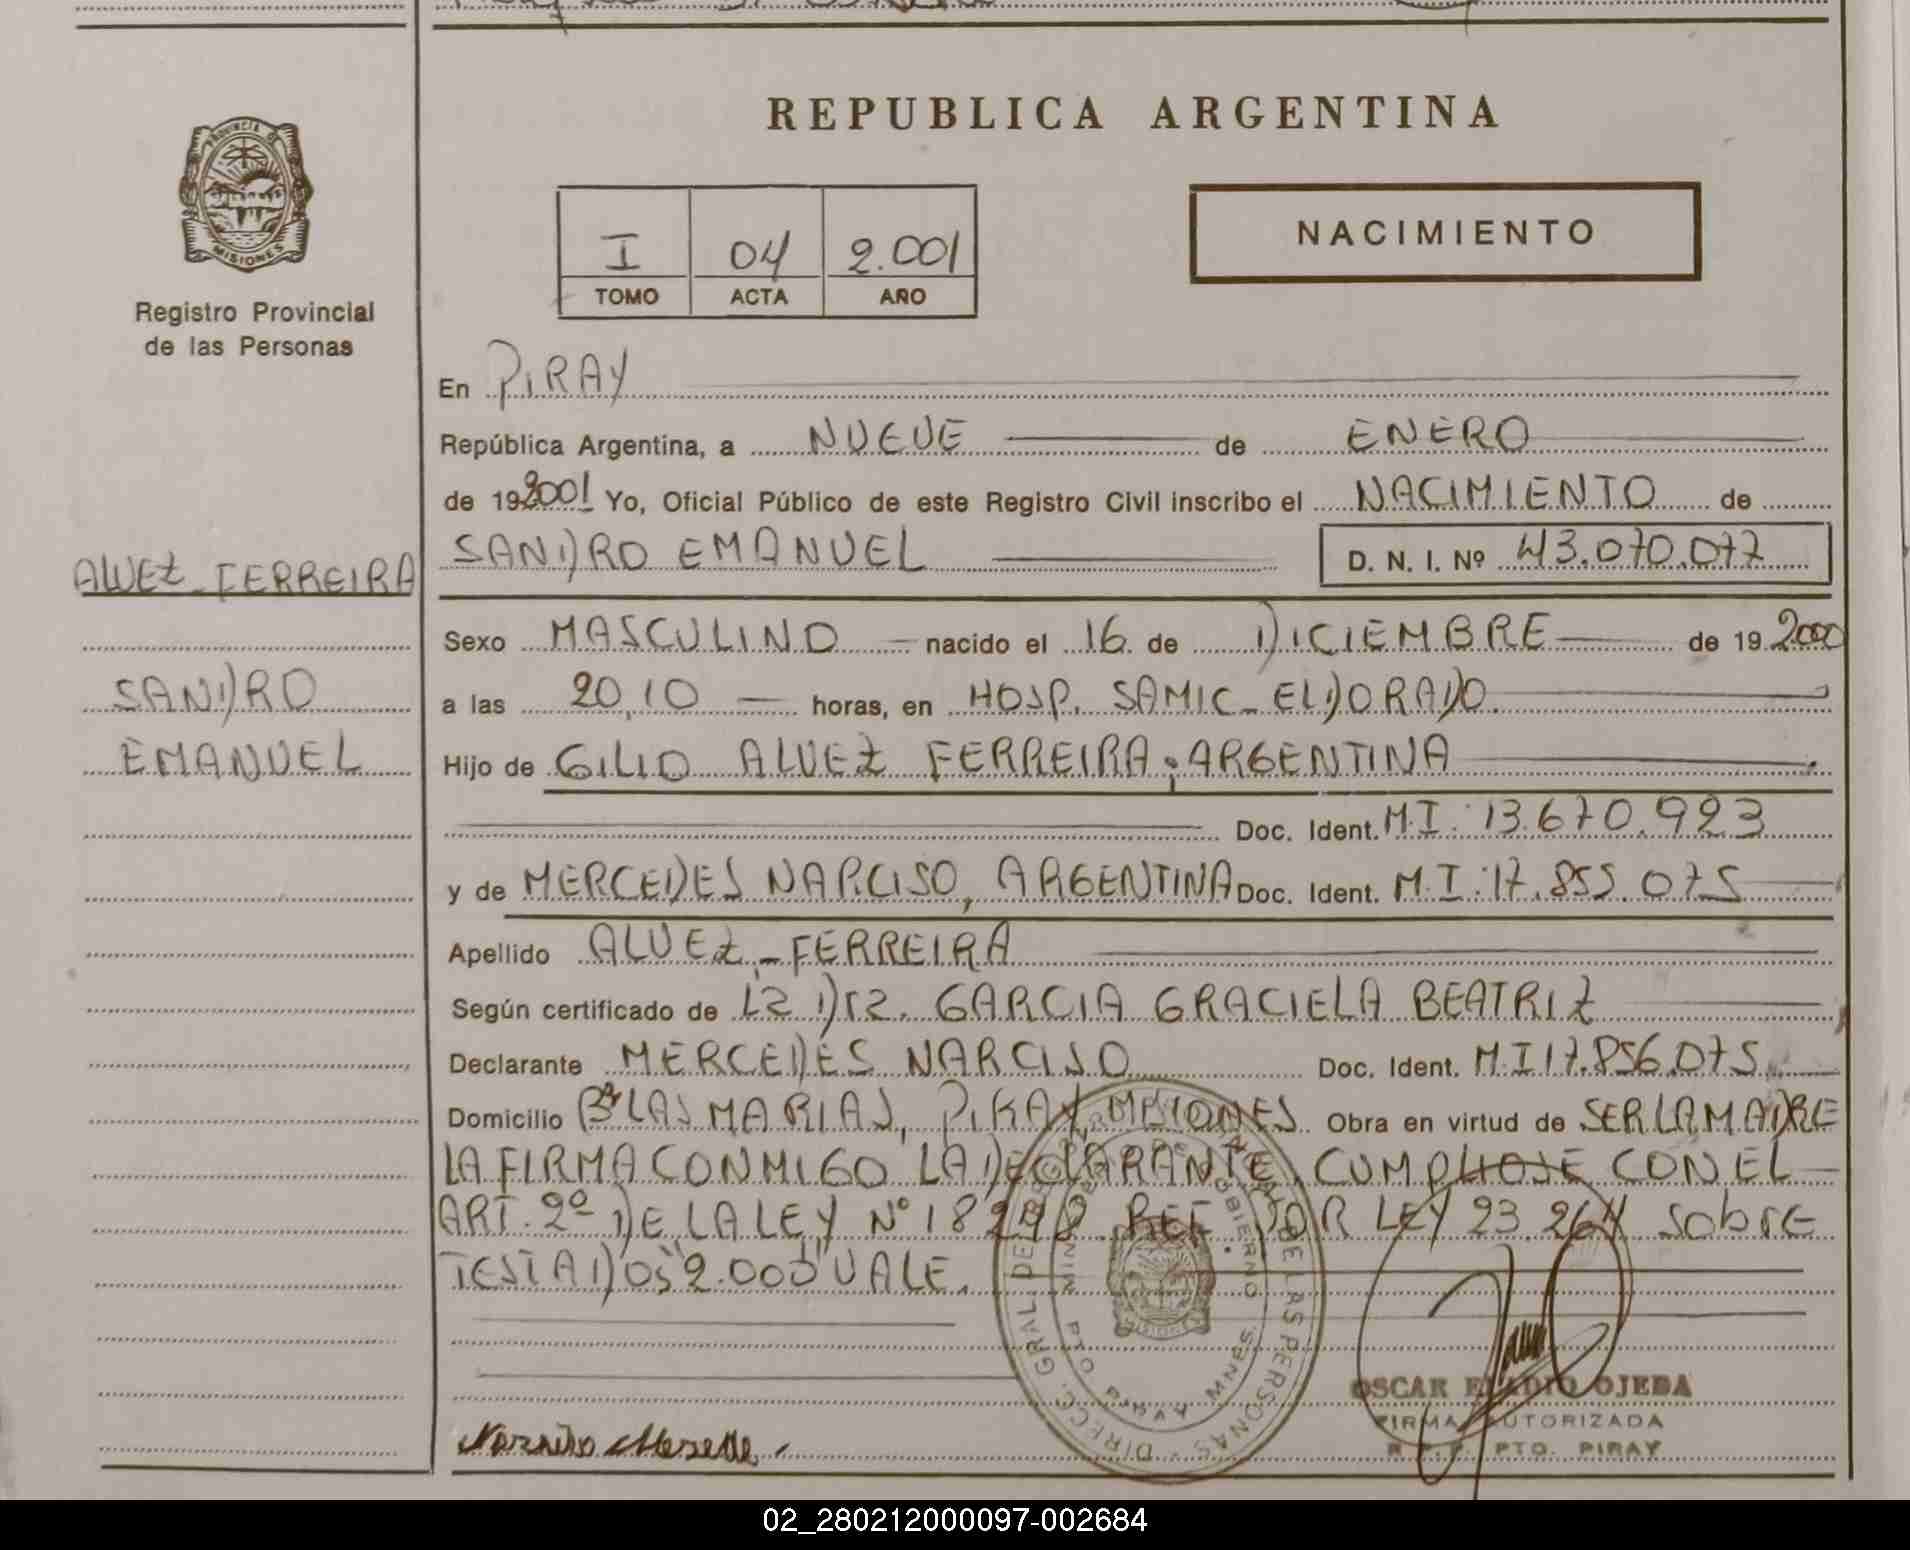 REPUBLICA ARGENTINA
PROVINCIA DE
MISIONES
Registro Provincial
de las Personas
I 04 2.001
TOMO ACTA AÑO
NACIMIENTO
En PIRAY
República Argentina, a NUEVE de ENERO
de 19 2001 Yo, Oficial Público de este Registro Civil inscribo el NACIMIENTO de
SANDRO EMANUEL D. N. I. Nº 43.070.077
ALVEZ - FERREIRA
SANDRO
EMANUEL
Sexo MASCULINO nacido el 16 de DICIEMBRE de 19 2.000
a las 20,10 horas, en HOSP. SAMIC - ELDORADO.
Hijo de GILIO ALVEZ FERREIRA; ARGENTINA
Doc. Ident. M.I: 13.670.923
y de MERCEDES NARCISO, ARGENTINA Doc. Ident. M.I: 17.855.075
Apellido ALVEZ - FERREIRA
Según certificado de LA DRA. GARCIA GRACIELA BEATRIZ
Declarante MERCEDES NARCISO Doc. Ident. M.I 17.856.075
Domicilio Bº LAS MARIAS, PIRAY, MISIONES Obra en virtud de SER LA MADRE
LA FIRMA CONMIGO LA DECLARANTE, CUMPLIOSE CON EL
ART. 2º DE LA LEY Nº 18248 REF. POR LEY 23.264 SOBRE
TESTADOS "2.000" VALE.
DIRECC. GRAL. DEL REGISTRO PROVINCIAL DE LAS PERSONAS
MINISTERIO DE GOBIERNO
PTO PIRAY MNES.
OSCAR ELADIO OJEDA
FIRMA AUTORIZADA
R.P.P. PTO. PIRAY
Narciso Mersede
02_280212000097-002684